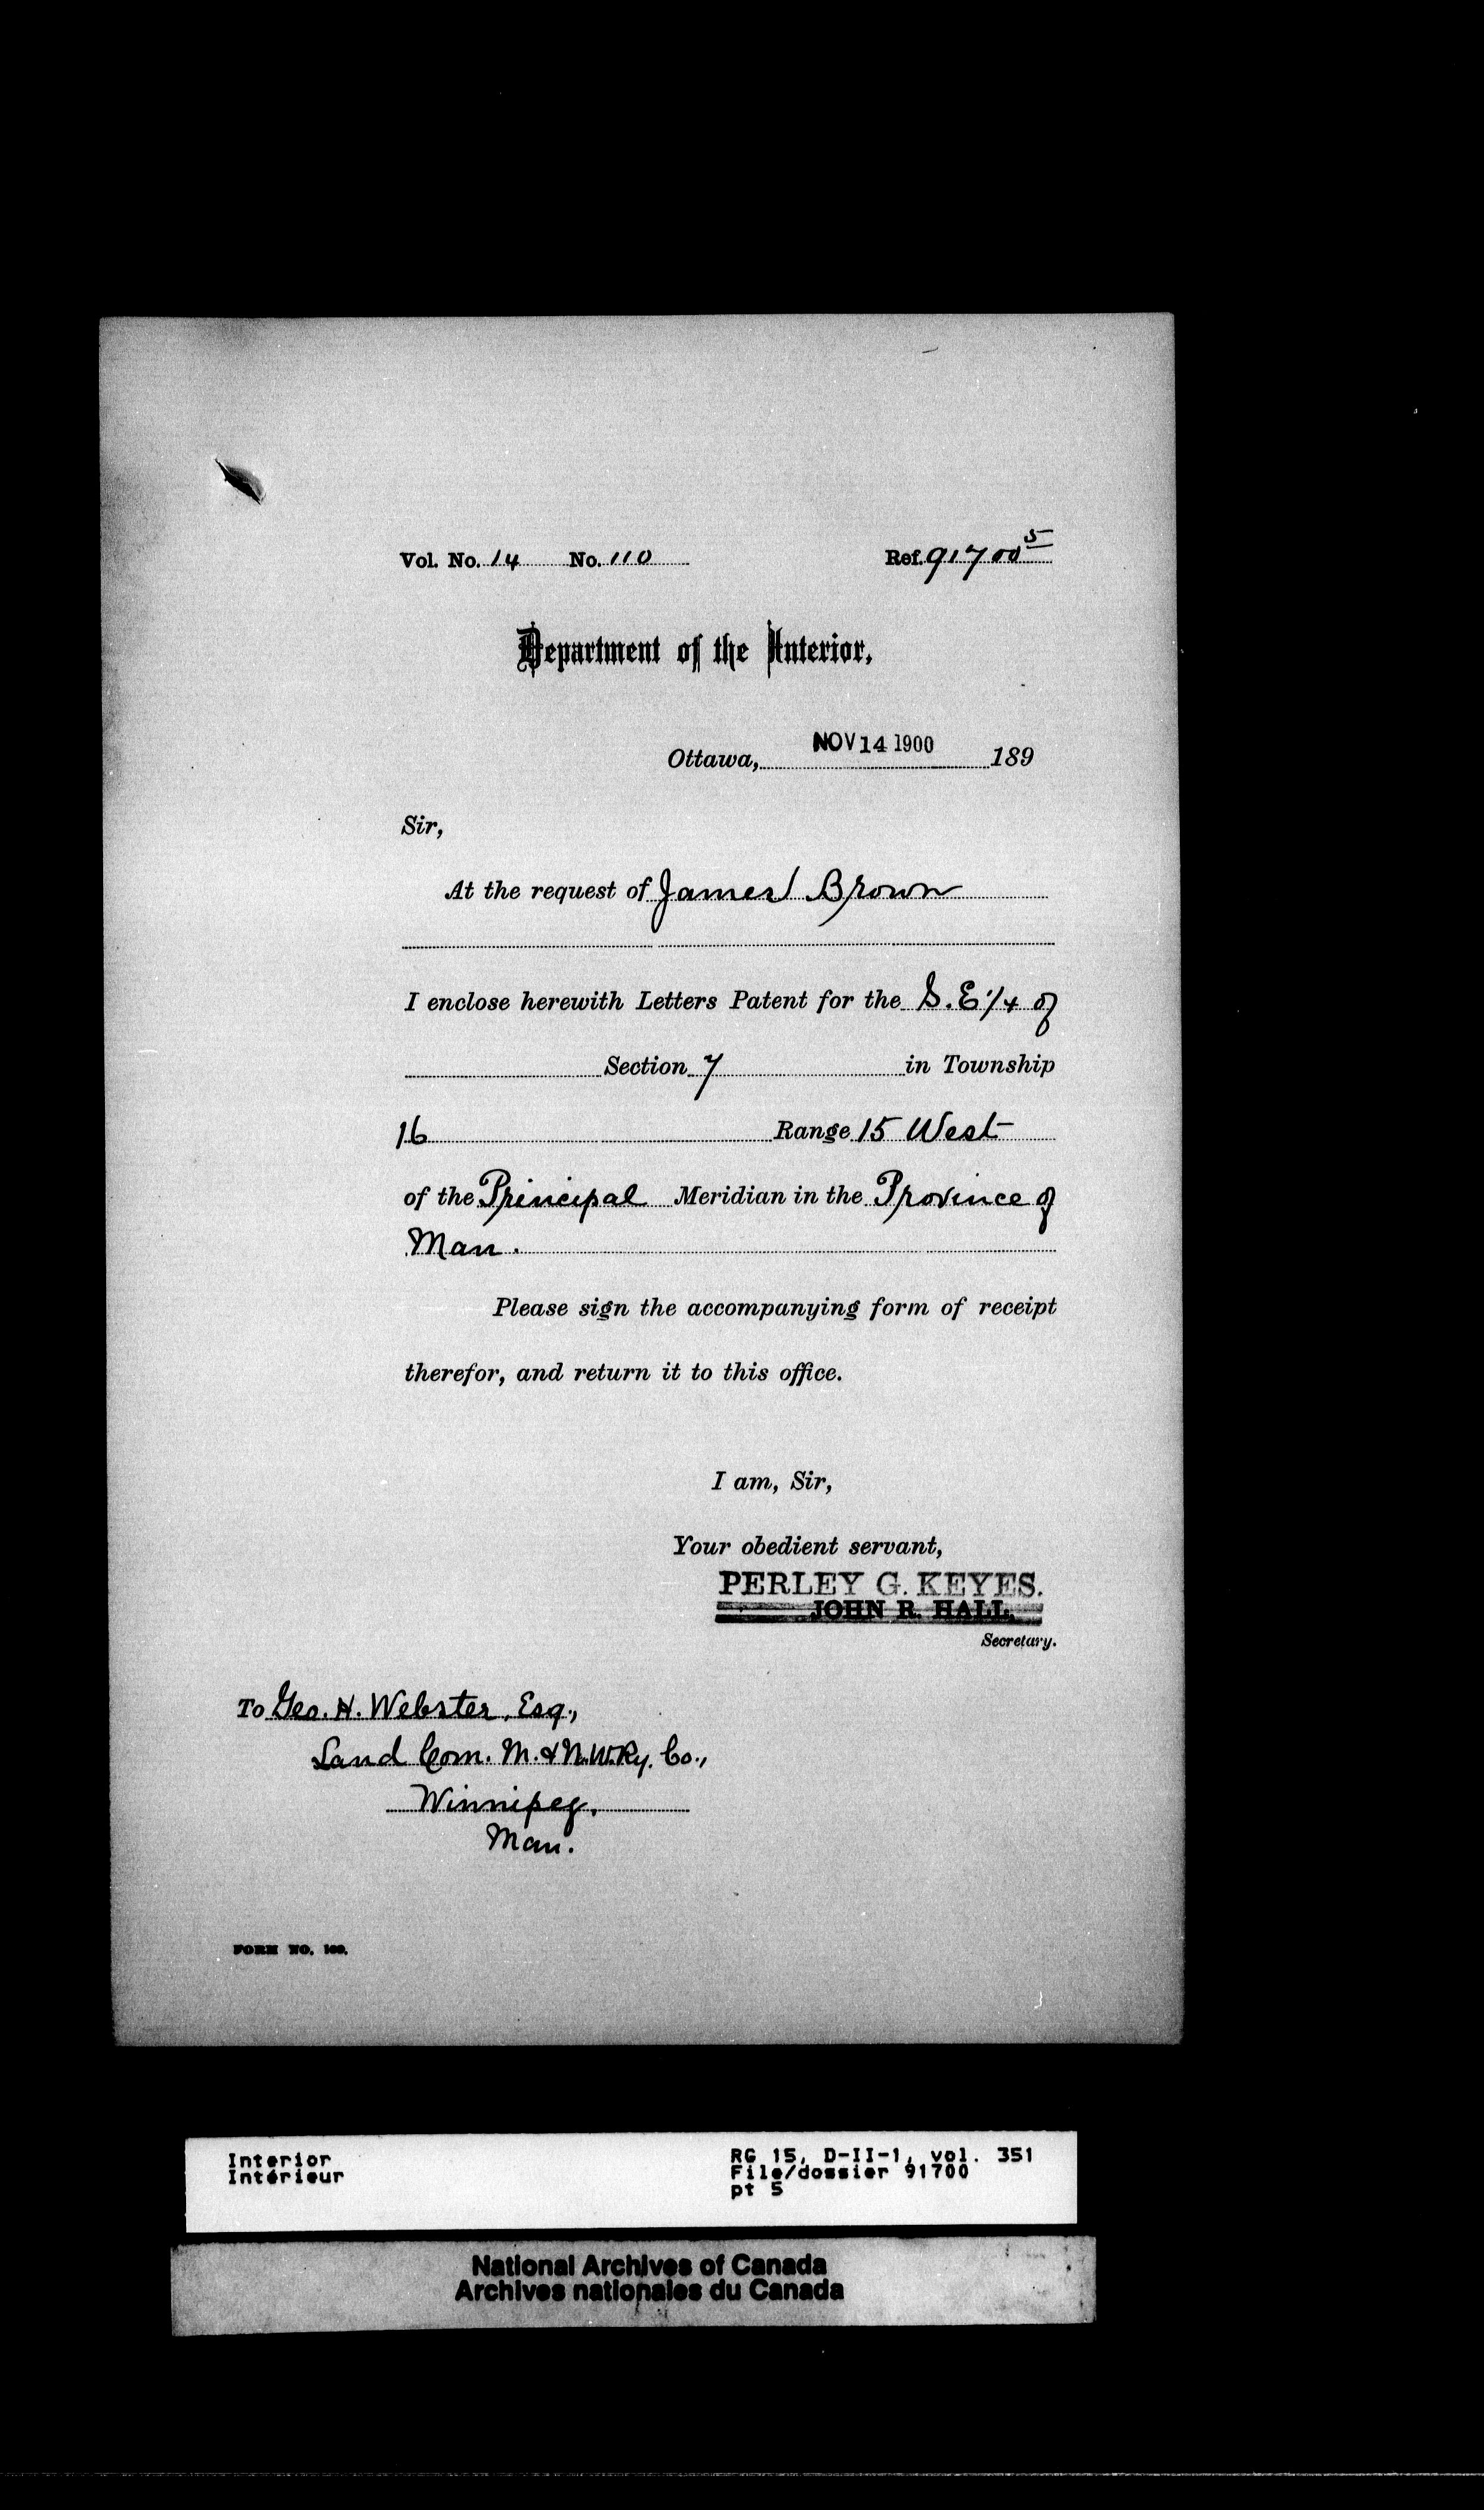 Vol. No. 14 No. 110 Ref. 91700 5
Department of the Interior,
Ottawa, NOV 14 1900 189
Sir,
At the request of James Brown
I enclose herewith Letters Patent for the S.E. 1/4 of
Section 7 in Township
16 Range 15 West
of the Principal Meridian in the Province of
Man.
Please sign the accompanying form of receipt
therefor, and return it to this office.
I am, Sir,
Your obedient servant,
PERLEY G. KEYES.
JOHN R. HALL,
Secretary.
To Geo. H. Webster, Esq.,
Land Com. M. & N.W. Ry. Co.,
Winnipeg,
Man.
FORM NO.
Interior RG 15, D-II-1, vol. 351
Intérieur File/dossier 91700
pt 5
National Archives of Canada
Archives nationales du Canada